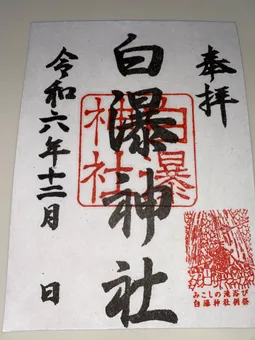 奉拝
白瀑神社
白瀑神社
令和六年十二月 日
みこしの滝浴び
白瀑神社例祭